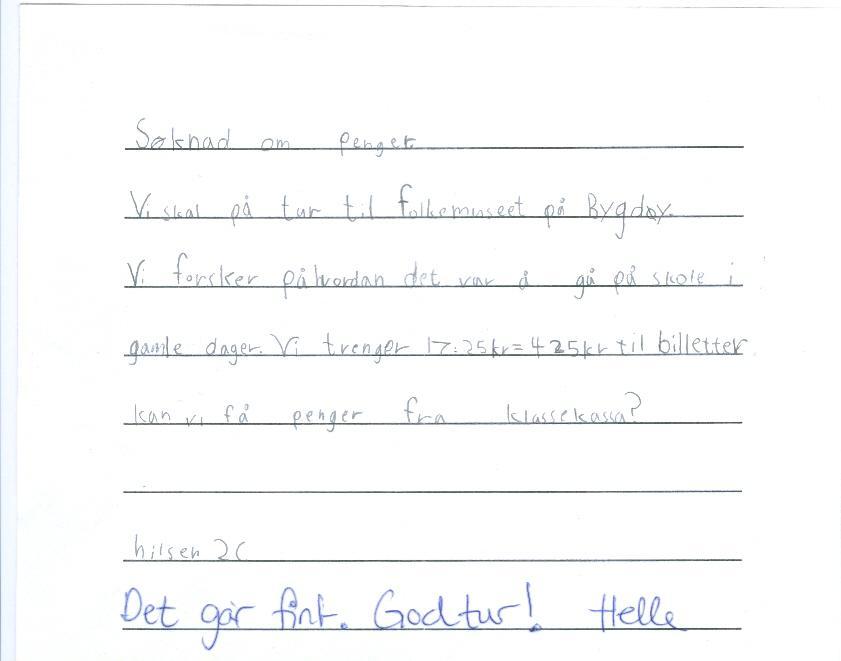 Søknad om penger
Vi skal på tur til folkemuseet på Bygdøy.
Vi forsker på hvordan det var å gå på skole i
gamle dager. Vi trenger 17.25kr=425kr til billetter
kan vi få penger fra klassekassa?
hilsen 2C
Det går fint. God tur! Helle